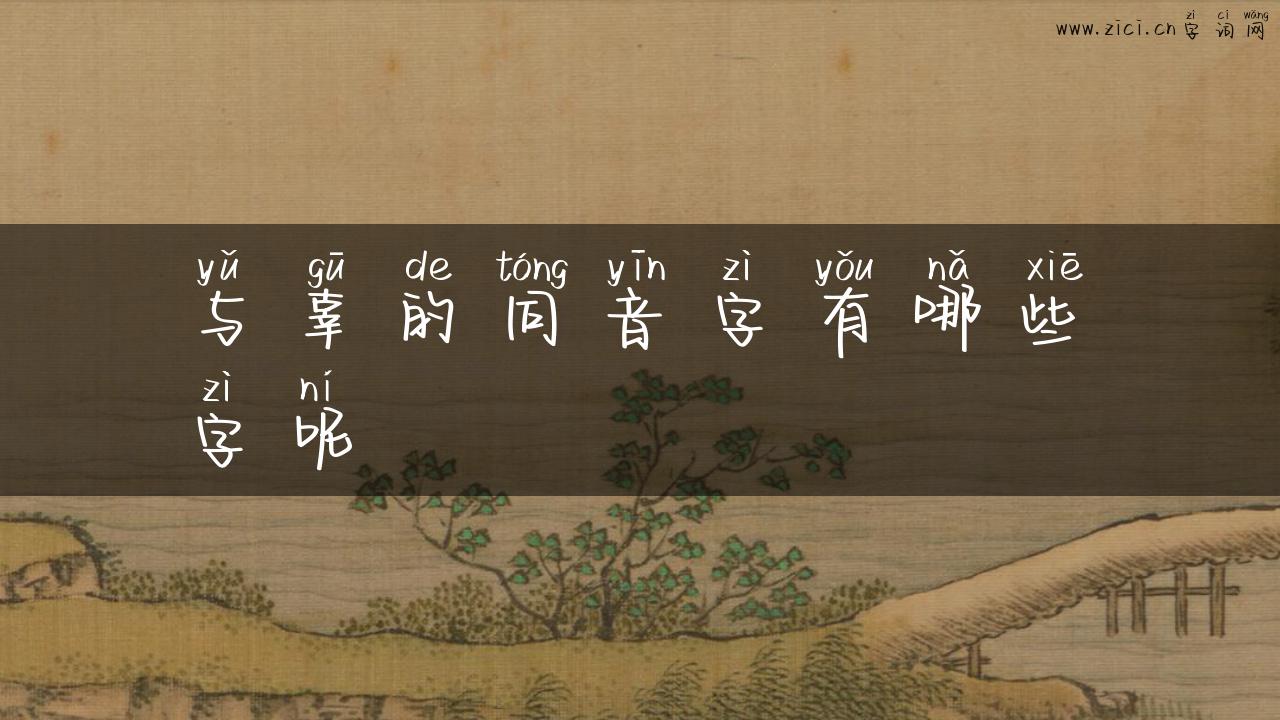 www.zici.cn zì cí wǎng
字词网
yǔ gū de tóng yīn zì yǒu nǎ xiē
与辜的同音字有哪些
zì ní
字呢